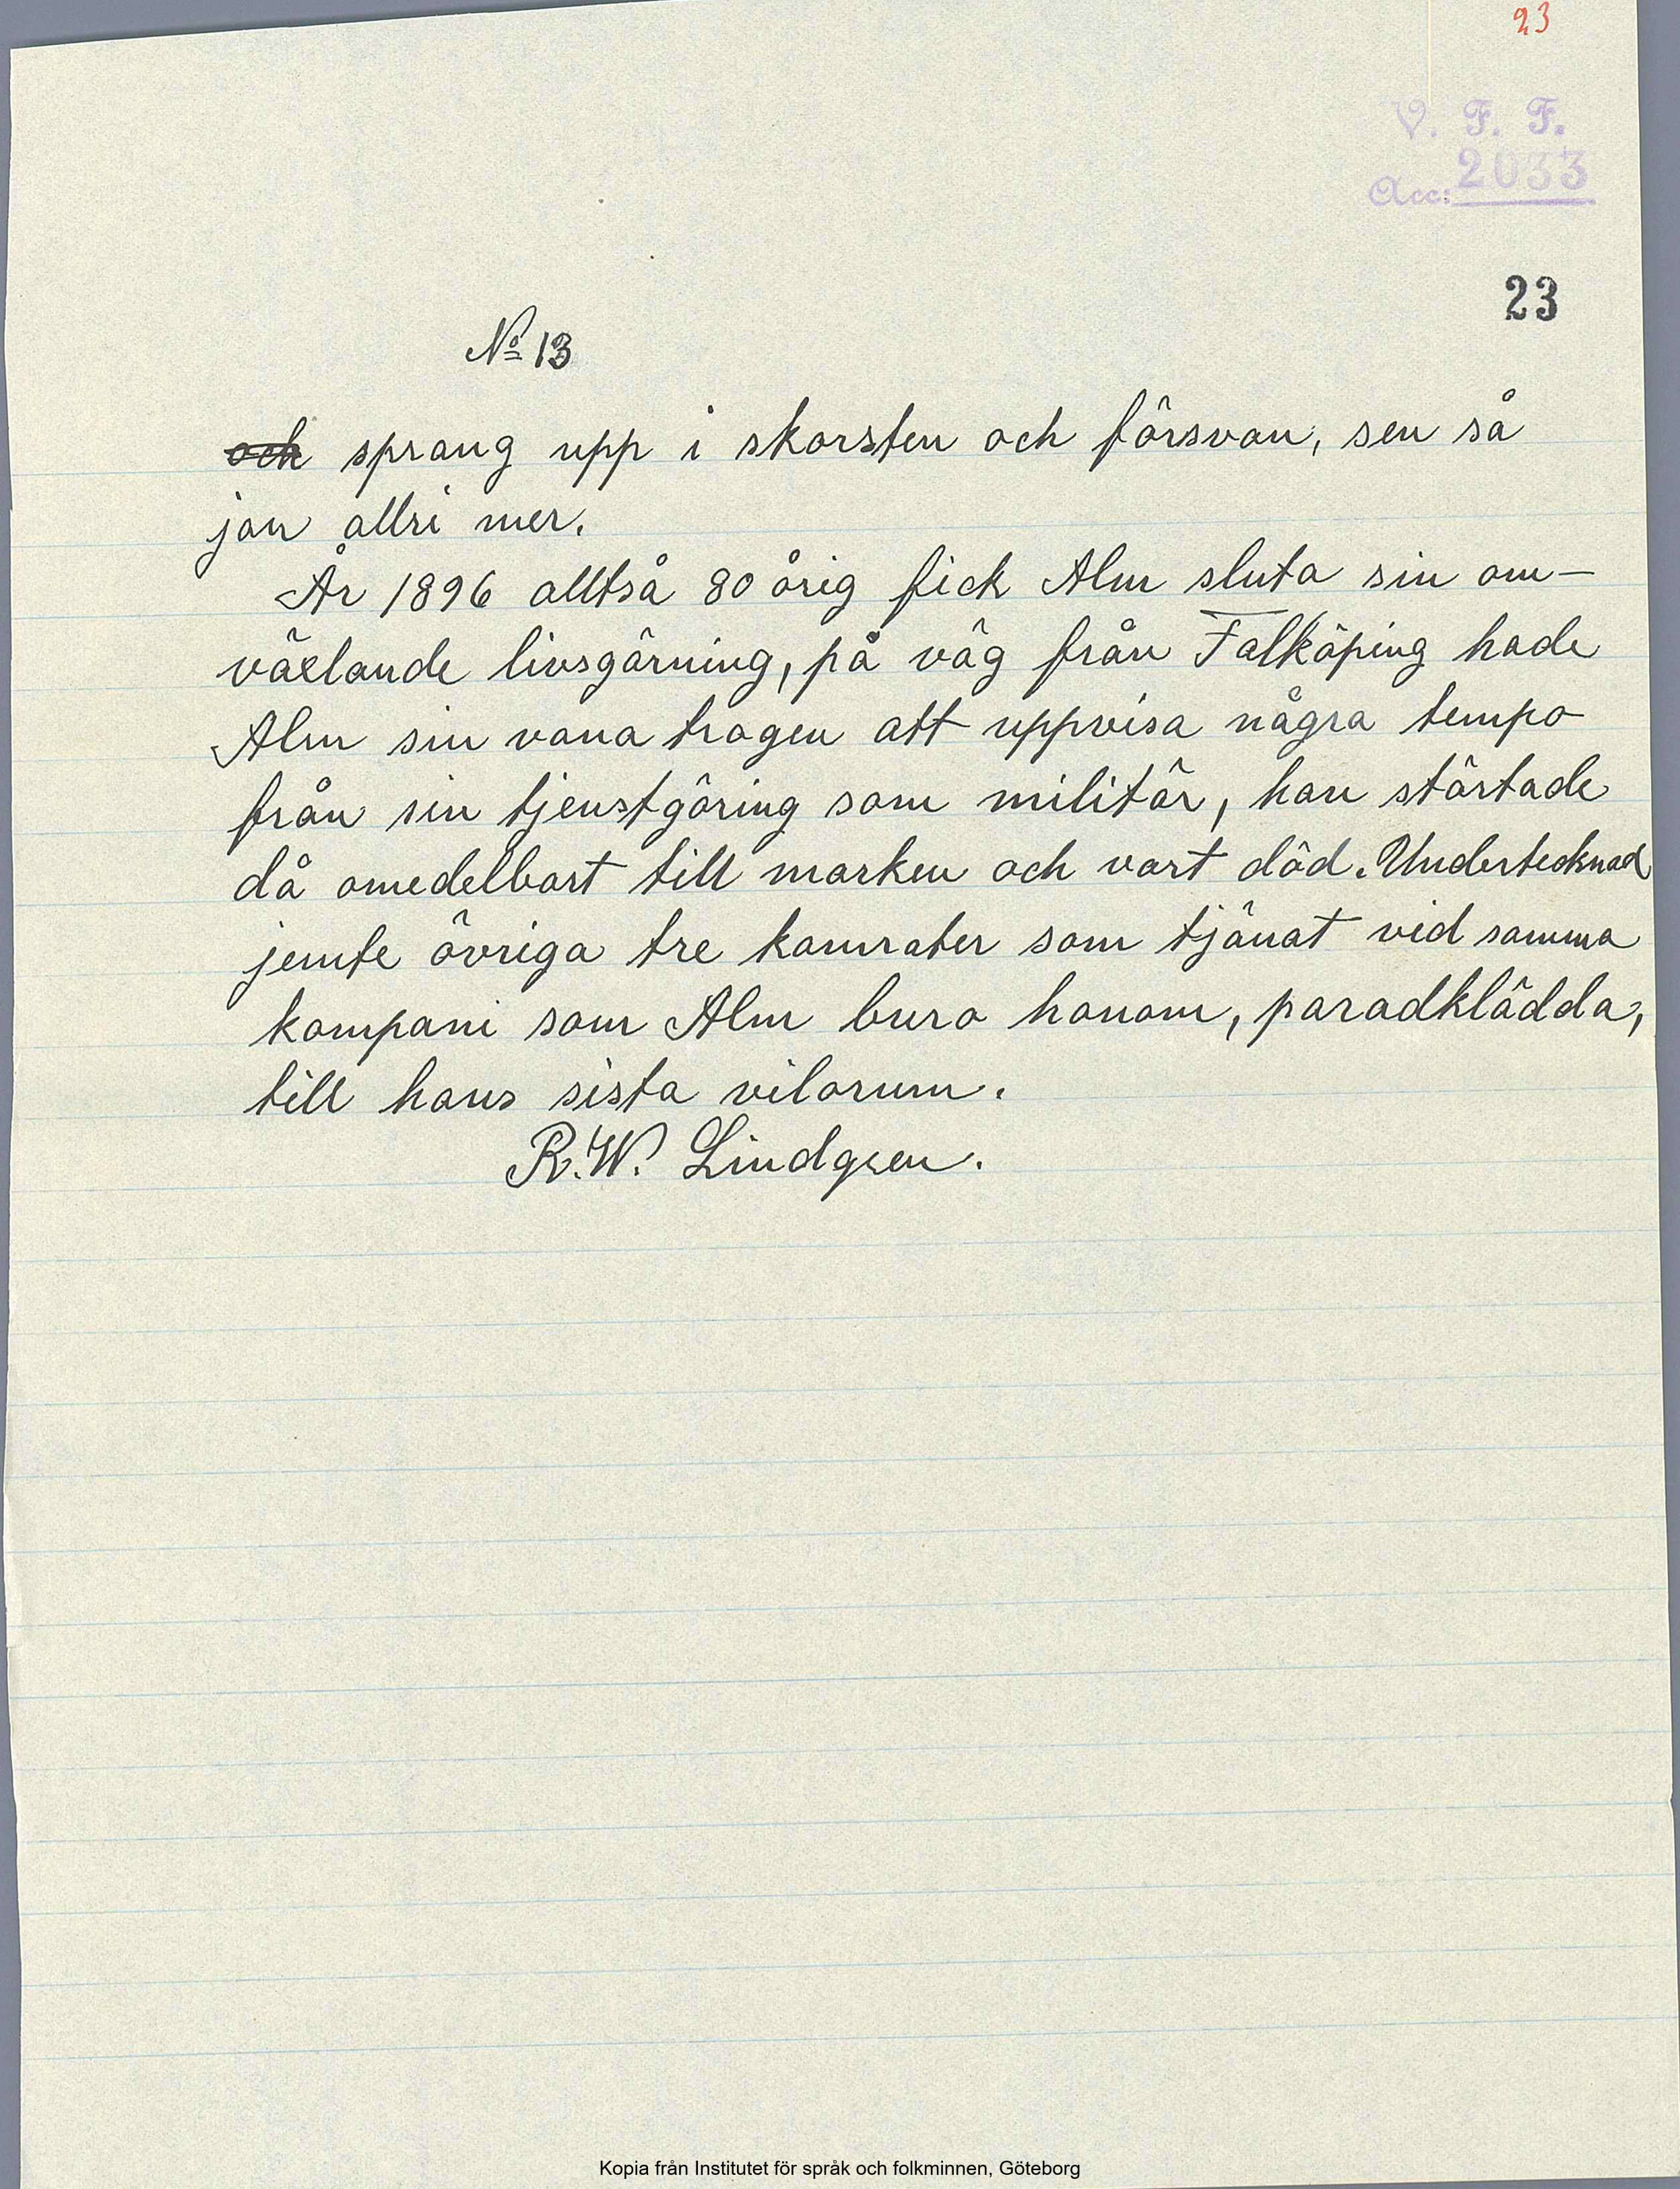 23
V. F. F.
Acc: 2033
23
No 13
och sprang upp i skorsten och försvan, sen så
jan allri mer.
År 1896 alltså 80 årig fick Alm sluta sin om-
växlande livsgärning, på väg från Falköping hade
Alm sin vana trogen att uppvisa några tempo
från sin tjenstgöring som militär, han störtade
då omedelbart till marken och vart död. Undertecknad
jemte övriga tre kamrater som tjänat vid samma
kompani som Alm buro honom, paradklädda,
till hans sista vilorum.
R.W. Lindgren.
Kopia från Institutet för språk och folkminnen, Göteborg